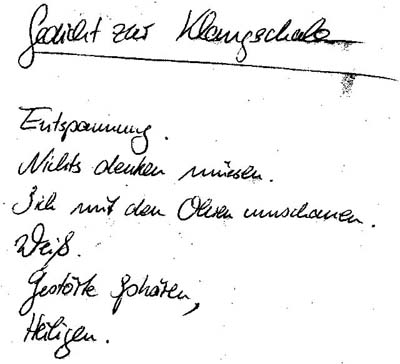 Gedicht zur Klangschale
Entspannung.
Nichts denken müssen.
Sich mit den Ohren umschauen.
Weiß.
Gestörte Sphären,
Heiligen.